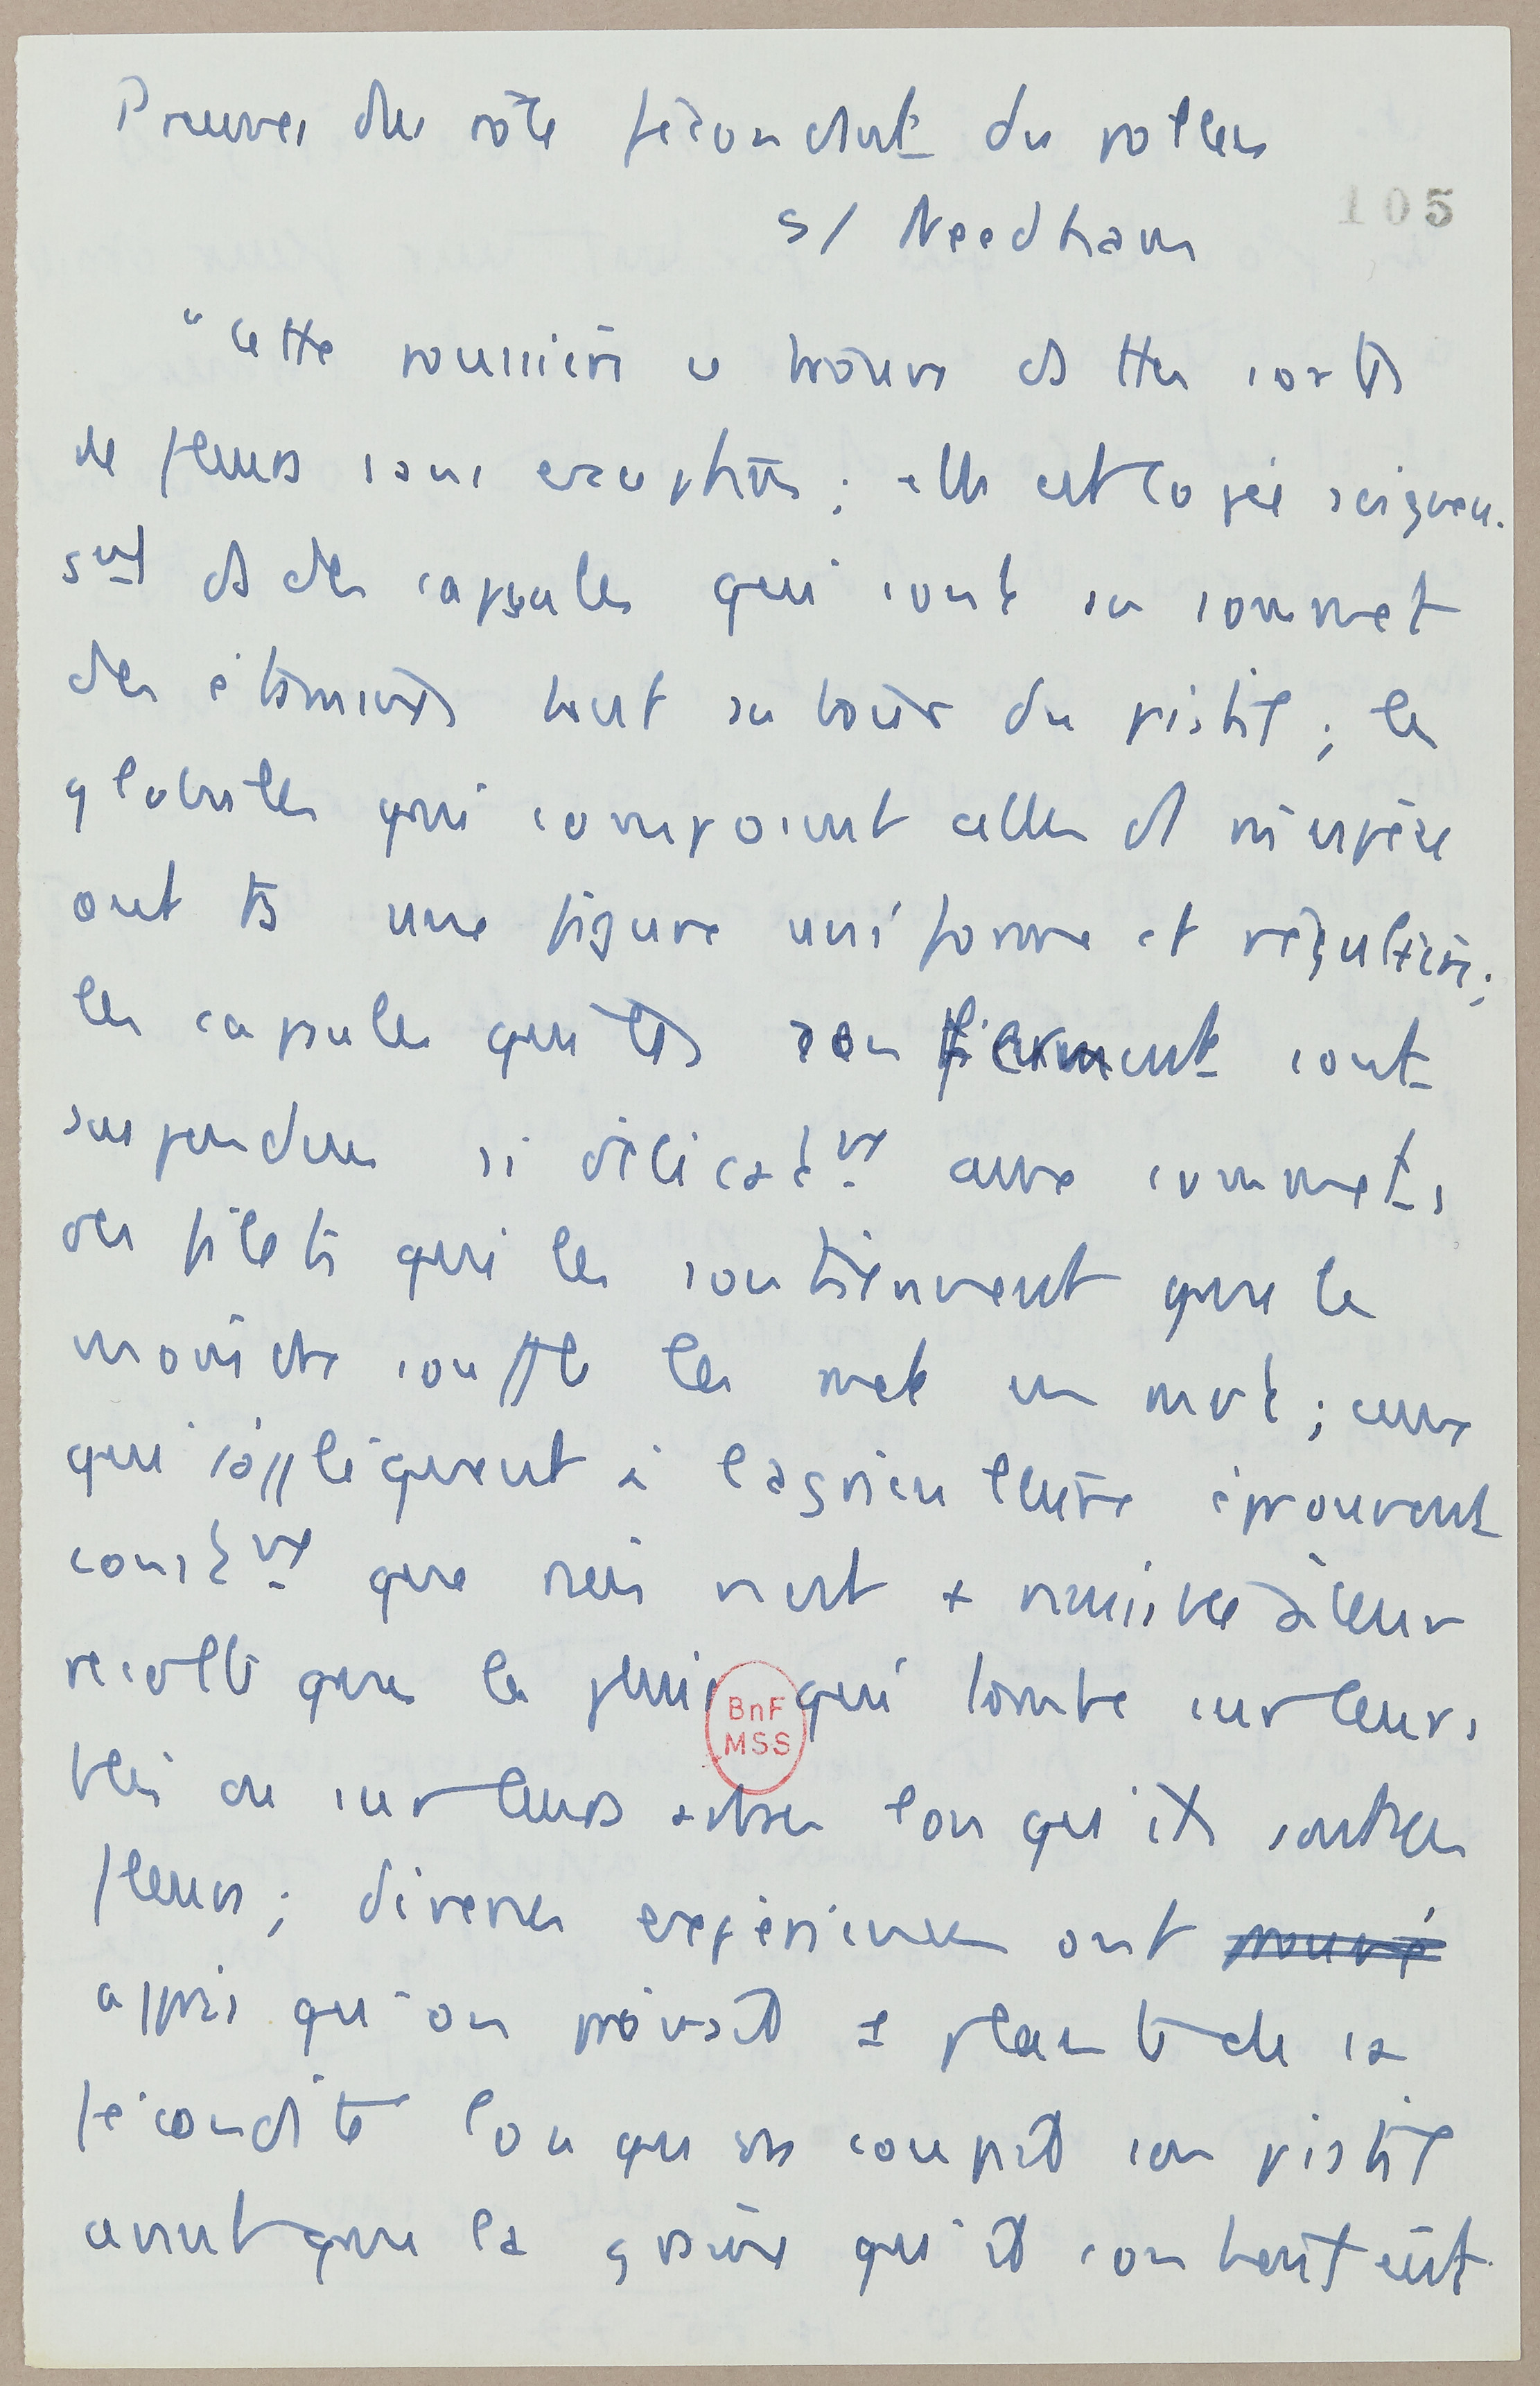 Preuves du rôle fécondant du pollen
105
s/ Needham
"Cette poussière se trouve ds ttes sortes
de fleurs sans exceptions ; elle est logée soigneu-
smt ds des capsules qui sont au sommet
des étamines tout autour du pistil ; les
globules qui composent celles d'1 même espèce
ont ts une figure uniforme et régulière ;
les capsules qui les renferment sont
suspendues si délicatemt aux sommets
des filets qui les soutiennent que le
moindre souffle les met en mvt ; ceux
qui s'appliquent à l'agriculture éprouvent
constmt que rien n'est + nuisible à leur
récolte que la pluie qui tombe sur leurs
blés ou sur leurs arbres lorsqu'ils sont en
fleurs ; diverses expériences ont prouvé
appris qu'on privait 1 plante de sa
fécondité lorsqu'on coupait son pistil
avant que la graine qu'il contenait eût
BnF
MSS